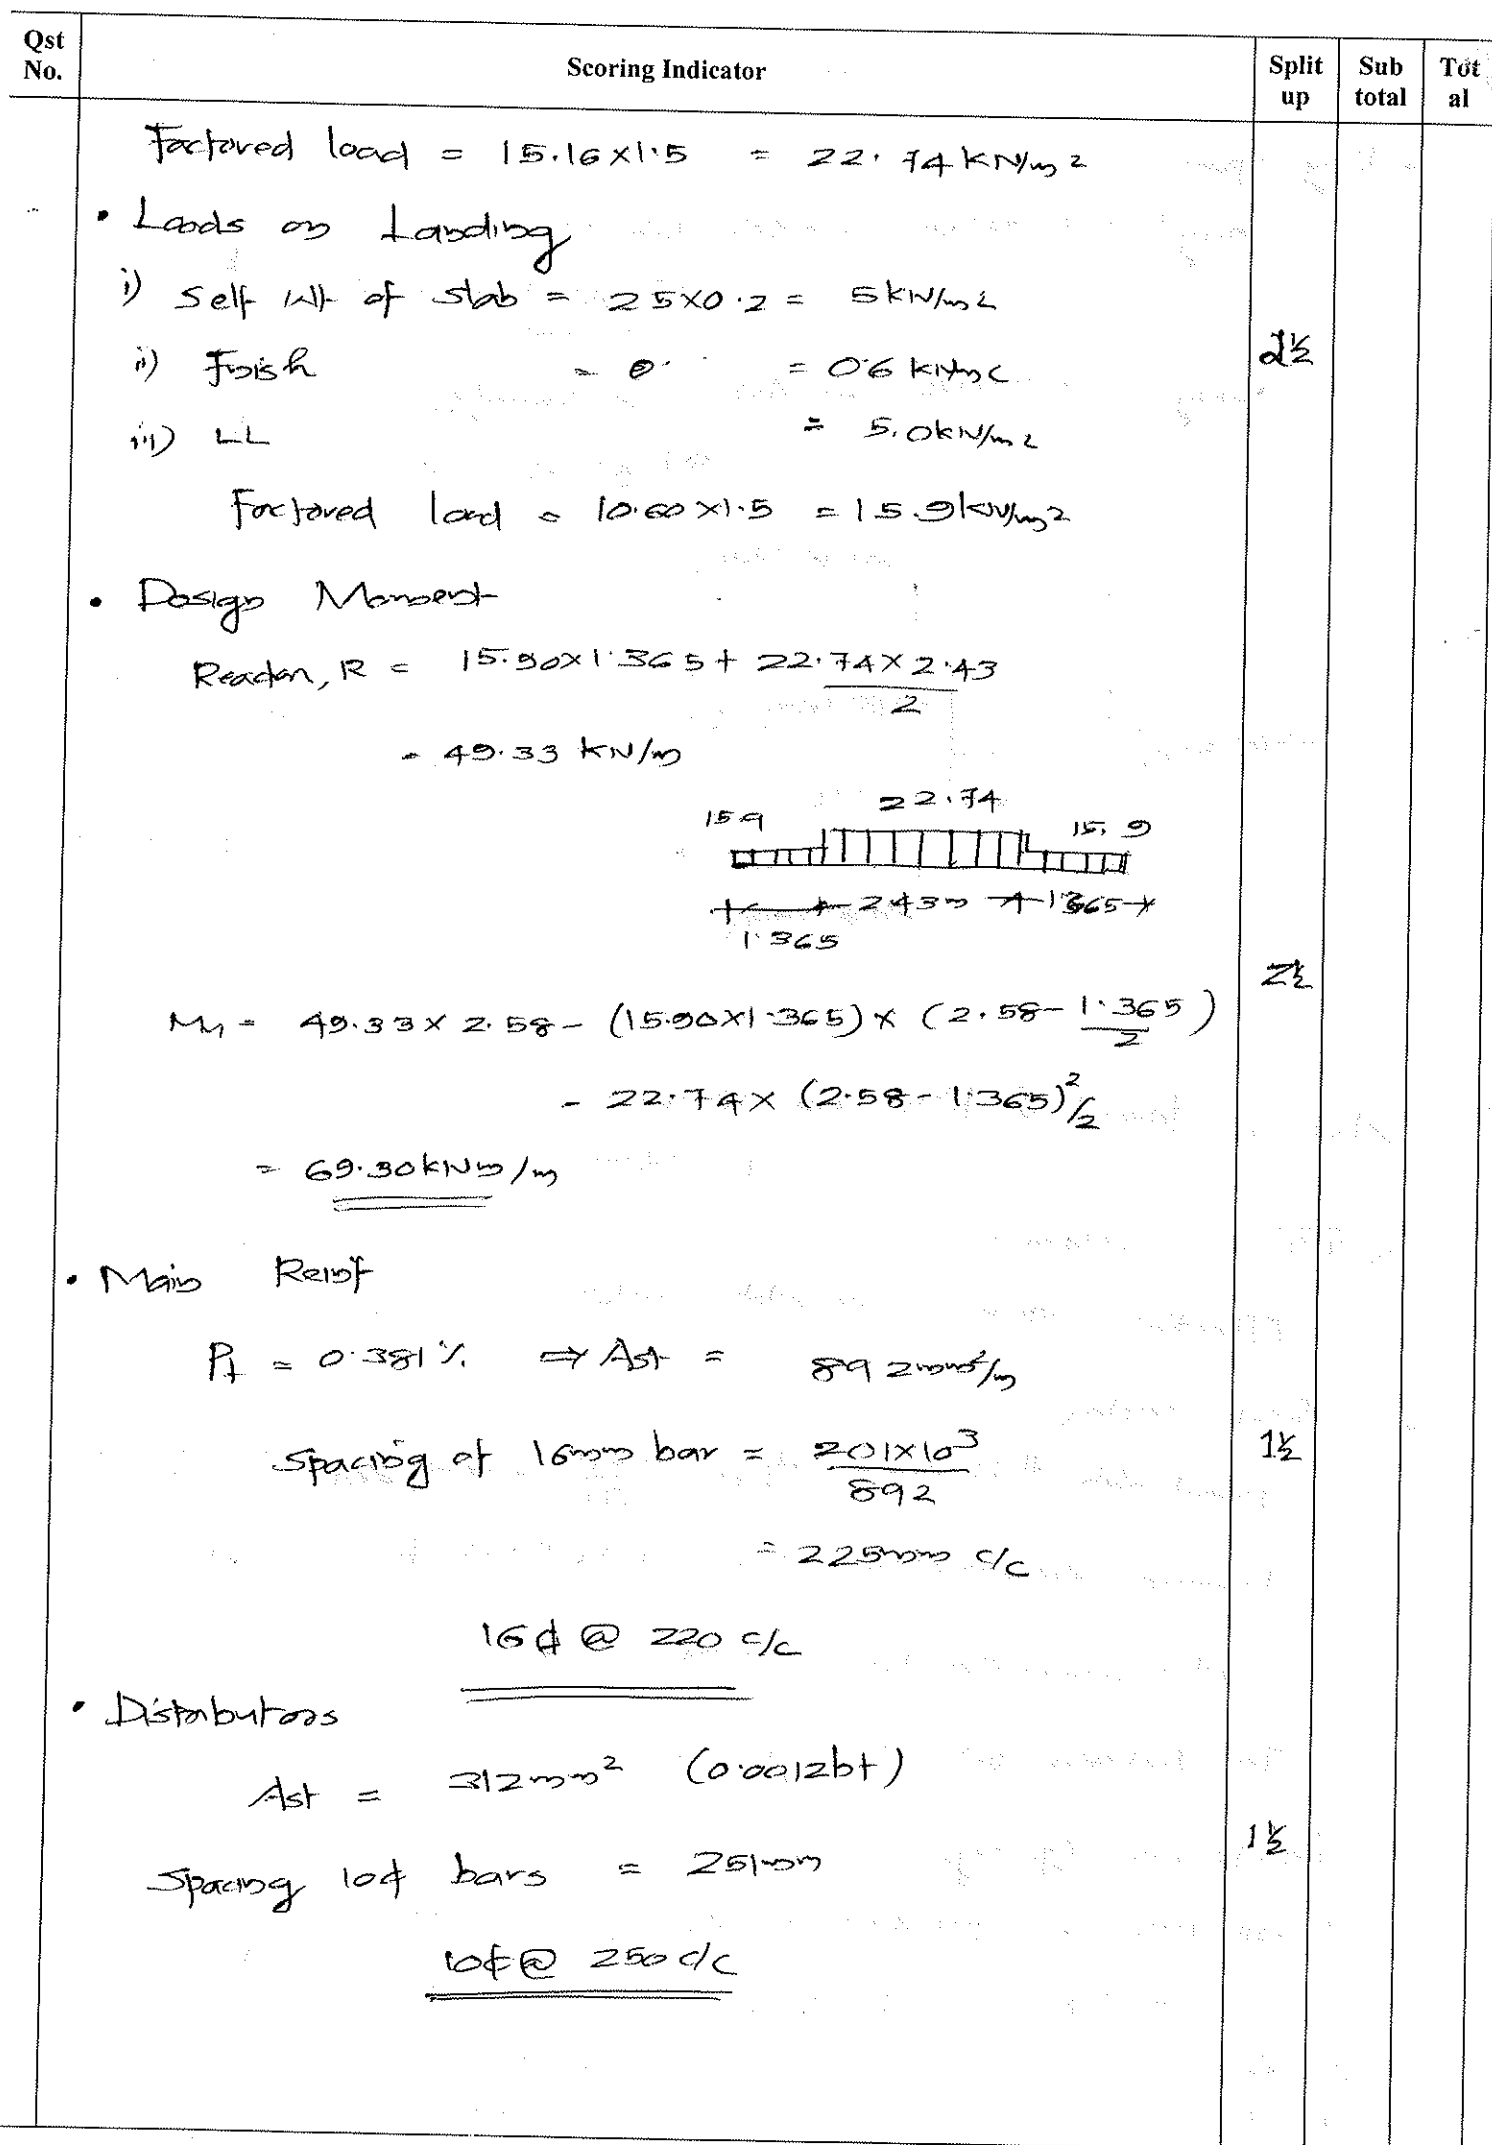 Qst No.
Scoring Indicator
Split up
Sub total
Tot al
Factored load = 15.16×1.5 = 22.74 KN/m2
• Loads on Landing
i) Self Wt of slab = 25×0.2 = 5KN/m2
2½
ii) Finish = 0.6 KN/m2
iii) LL = 5.0KN/m2
Factored load = 10.60×1.5 = 15.9KN/m2
• Design Moment
Reaction, R = 15.90×1.365 + 22.74×2.43 / 2
= 49.33 KN/m
22.74
15.9 15.9
2.43m 1.365
1.365
2½
Mu = 49.33×2.58 – (15.90×1.365) × (2.58 – 1.365/2)
– 22.74× (2.58 – 1.365)²/2
= 69.30KNm/m
• Main Reinf
Pt = 0.381 % ⇒ Ast = 892mm²/m
Spacing of 16mm bar = 201×10³ / 892
1½
= 225mm c/c
16ϕ @ 220 c/c
• Distributors
Ast = 312mm² (0.0012bt)
1½
Spacing 10ϕ bars = 251mm
10ϕ@ 250 c/c